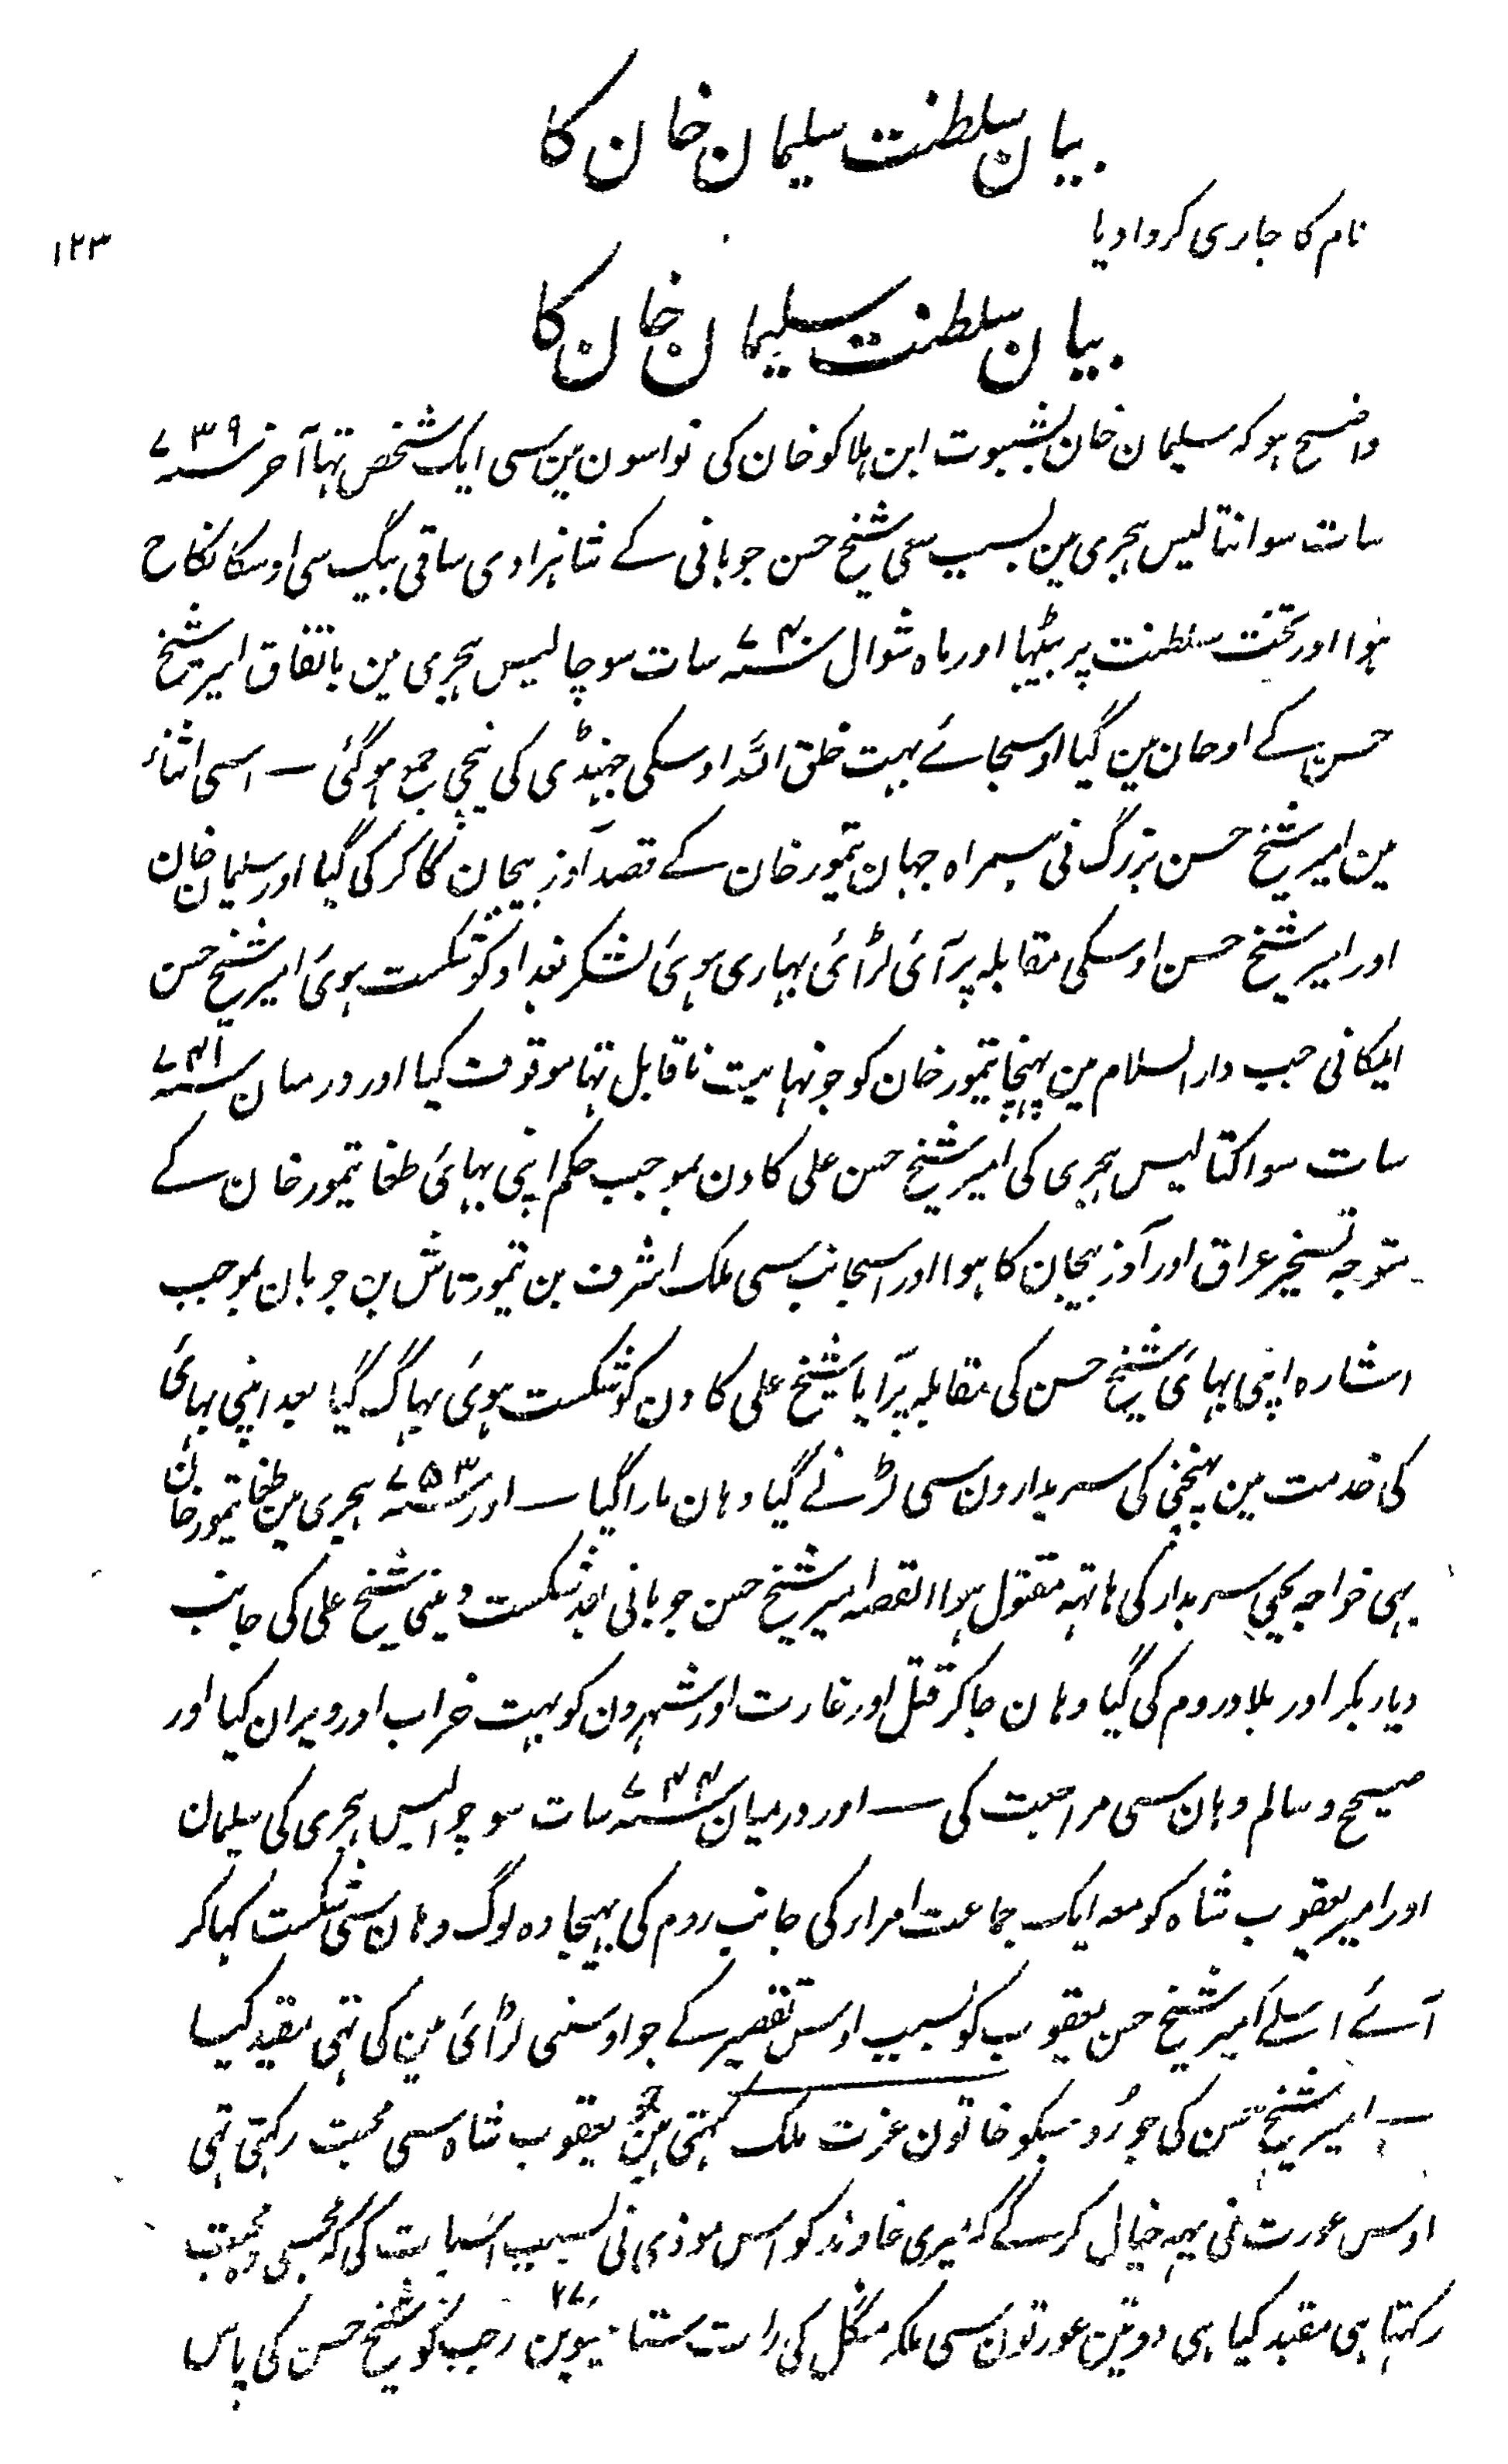 بیان سلطنت سلیمان خان کا
۱۲۳
نام کا جاری کروا دیا
بیان سلطنت سلیمان خان کا
واضح ہو کہ سلیمان خان یشبوت ابن ہلاکو خان کی نواسون مین سی ایک شخص تہا آخر سنہ ۷۳۹
سات سو انتالیس ہجری مین بسبب سعی شیخ حسن جوبانی کے شاہزادی ساقی بیگ سی اوسکا نکاح
ہوا اور تخت سلطنت پر بیٹہا اور ماہ شوال سنہ ۷۴۰ سات سو چالیس ہجری مین باتفاق امیر شیخ
حسن کے اوجان مین گیا اوسجائے بہت خلق اللہ اوسکی جہنڈی کی نیچی جمع ہو گئی — اسی اثناء
مین امیر شیخ حسن بزرگ نی ہمراہ جہان تیمور خان کے قصد آذربیجان کا کر کی گیا اور سلیمان خان
اور امیر شیخ حسن اوسکی مقابلہ پر آئی لڑائی بہاری ہوئی لشکر بغداد کو شکست ہوئی امیر شیخ حسن
ایلکانی جب دارالسلام مین پہنچا تیمور خان کو جو نہایت ناقابل تہا موقوف کیا اور درمیان سنہ ۷۴۱
سات سو اکتالیس ہجری کی امیر شیخ حسن علی کاون بموجب حکم اپنی بہائی طغا تیمور خان کے
متوجہ تسخیر عراق اور آذربیجان کا ہوا اور اسجانب سی ملک اشرف بن تیمورتاش بن جوبان بموجب
اشارہ اپنی بہائی شیخ حسن کی مقابلہ پر آیا شیخ علی کاون کو شکست ہوئی بہاگ گیا بعد اپنی بہائی
کی خدمت مین پہنچنی کی سربدارون سی لڑنے گیا وہان مارا گیا — اور سنہ ۷۵۳ ہجری مین طغا تیمور خان
بہی خواجہ یحیی سربدار کی ہاتہہ مقتول ہوا القصہ امیر شیخ حسن جوبانی بعد شکست دینی شیخ علی کی جانب
دیار بکر اور بلاد روم کی گیا وہان جا کر قتل اور غارت اور شہرون کو بہت خراب اور ویران کیا اور
صحیح و سالم وہان سی مراجعت کی — اور درمیان سنہ ۷۴۴ سات سو چوالیس ہجری کی سلیمان
اور امیر یعقوب شاہ کو معہ ایک جماعت امراء کی جانب روم کی بہیجا وہ لوگ وہان سی شکست کہا کر
آئے اسلئے امیر شیخ حسن یعقوب کو بسبب اوس تقصیر کے جو اوسنی لڑائی مین کی تہی مقید کیا
— امیر شیخ حسن کی جورُو جسکو خاتون عزت ملک کہتی ہین یعقوب شاہ سی محبت رکہتی تہی
اوس عورت نی یہہ خیال کر کے کہ میری خاوند کو اس موذی نی بسبب اسبات کی کہ مجہسی وہ محبت
رکہتا ہی مقید کیا ہی دو تین عورتون سی ملکر منگل کی رات ستائیسوین ۲۷ رجب کو شیخ حسن کی پاس